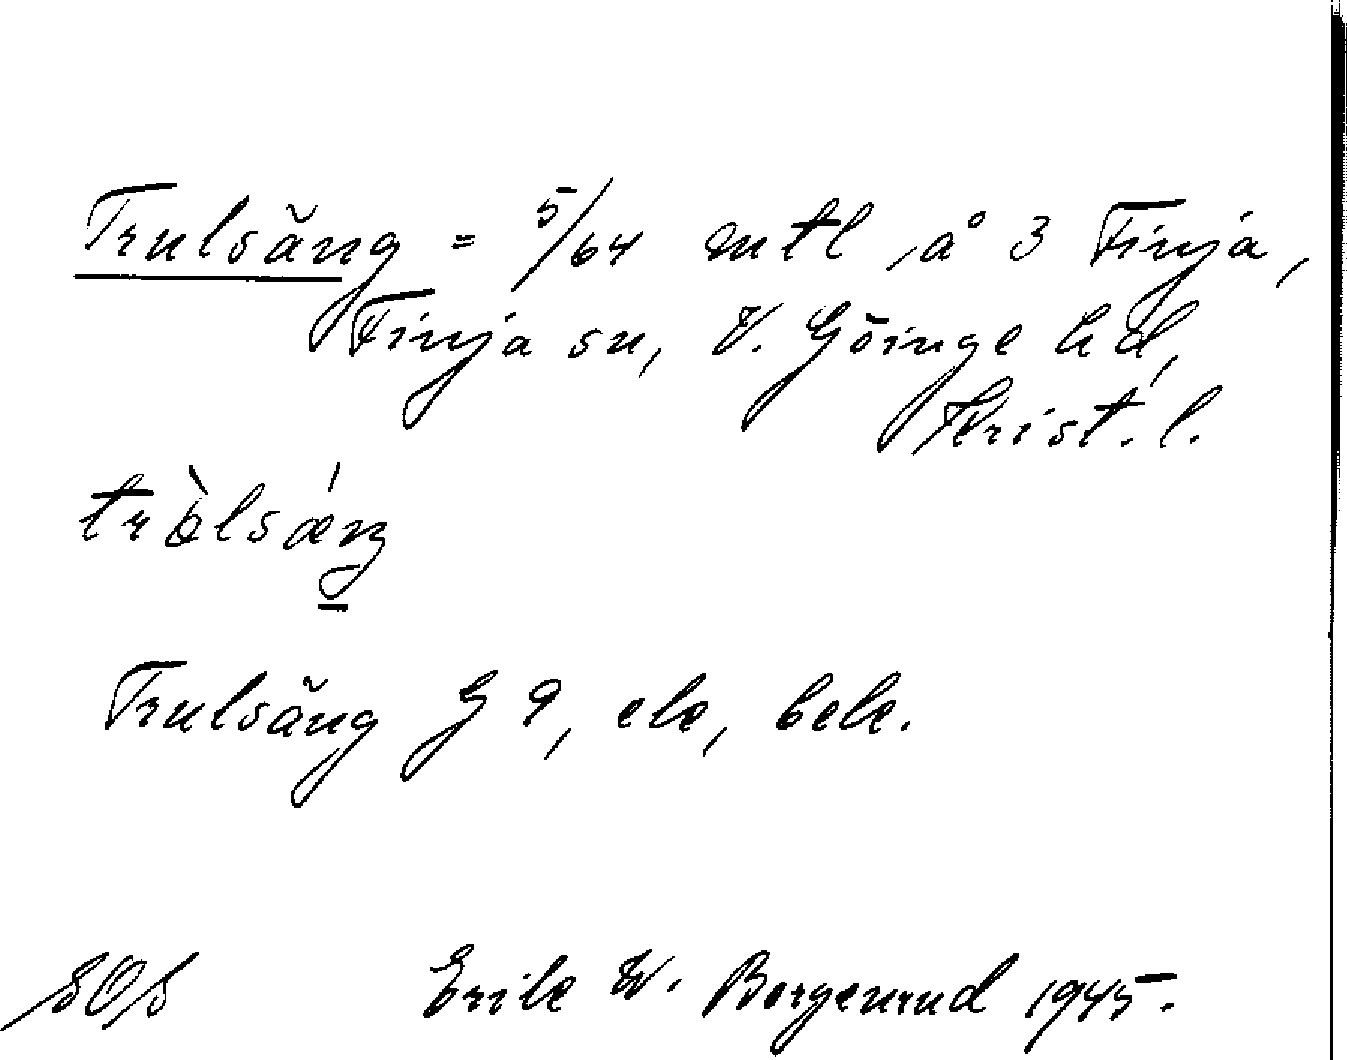 Trulsäng = 5/64 mtl å 3 Finja,
Finja sn, V. Göinge hd,
Krist. l.
Trulsäng G 9, ek, bek.
SOS Erik W. Borgenrud 1945.